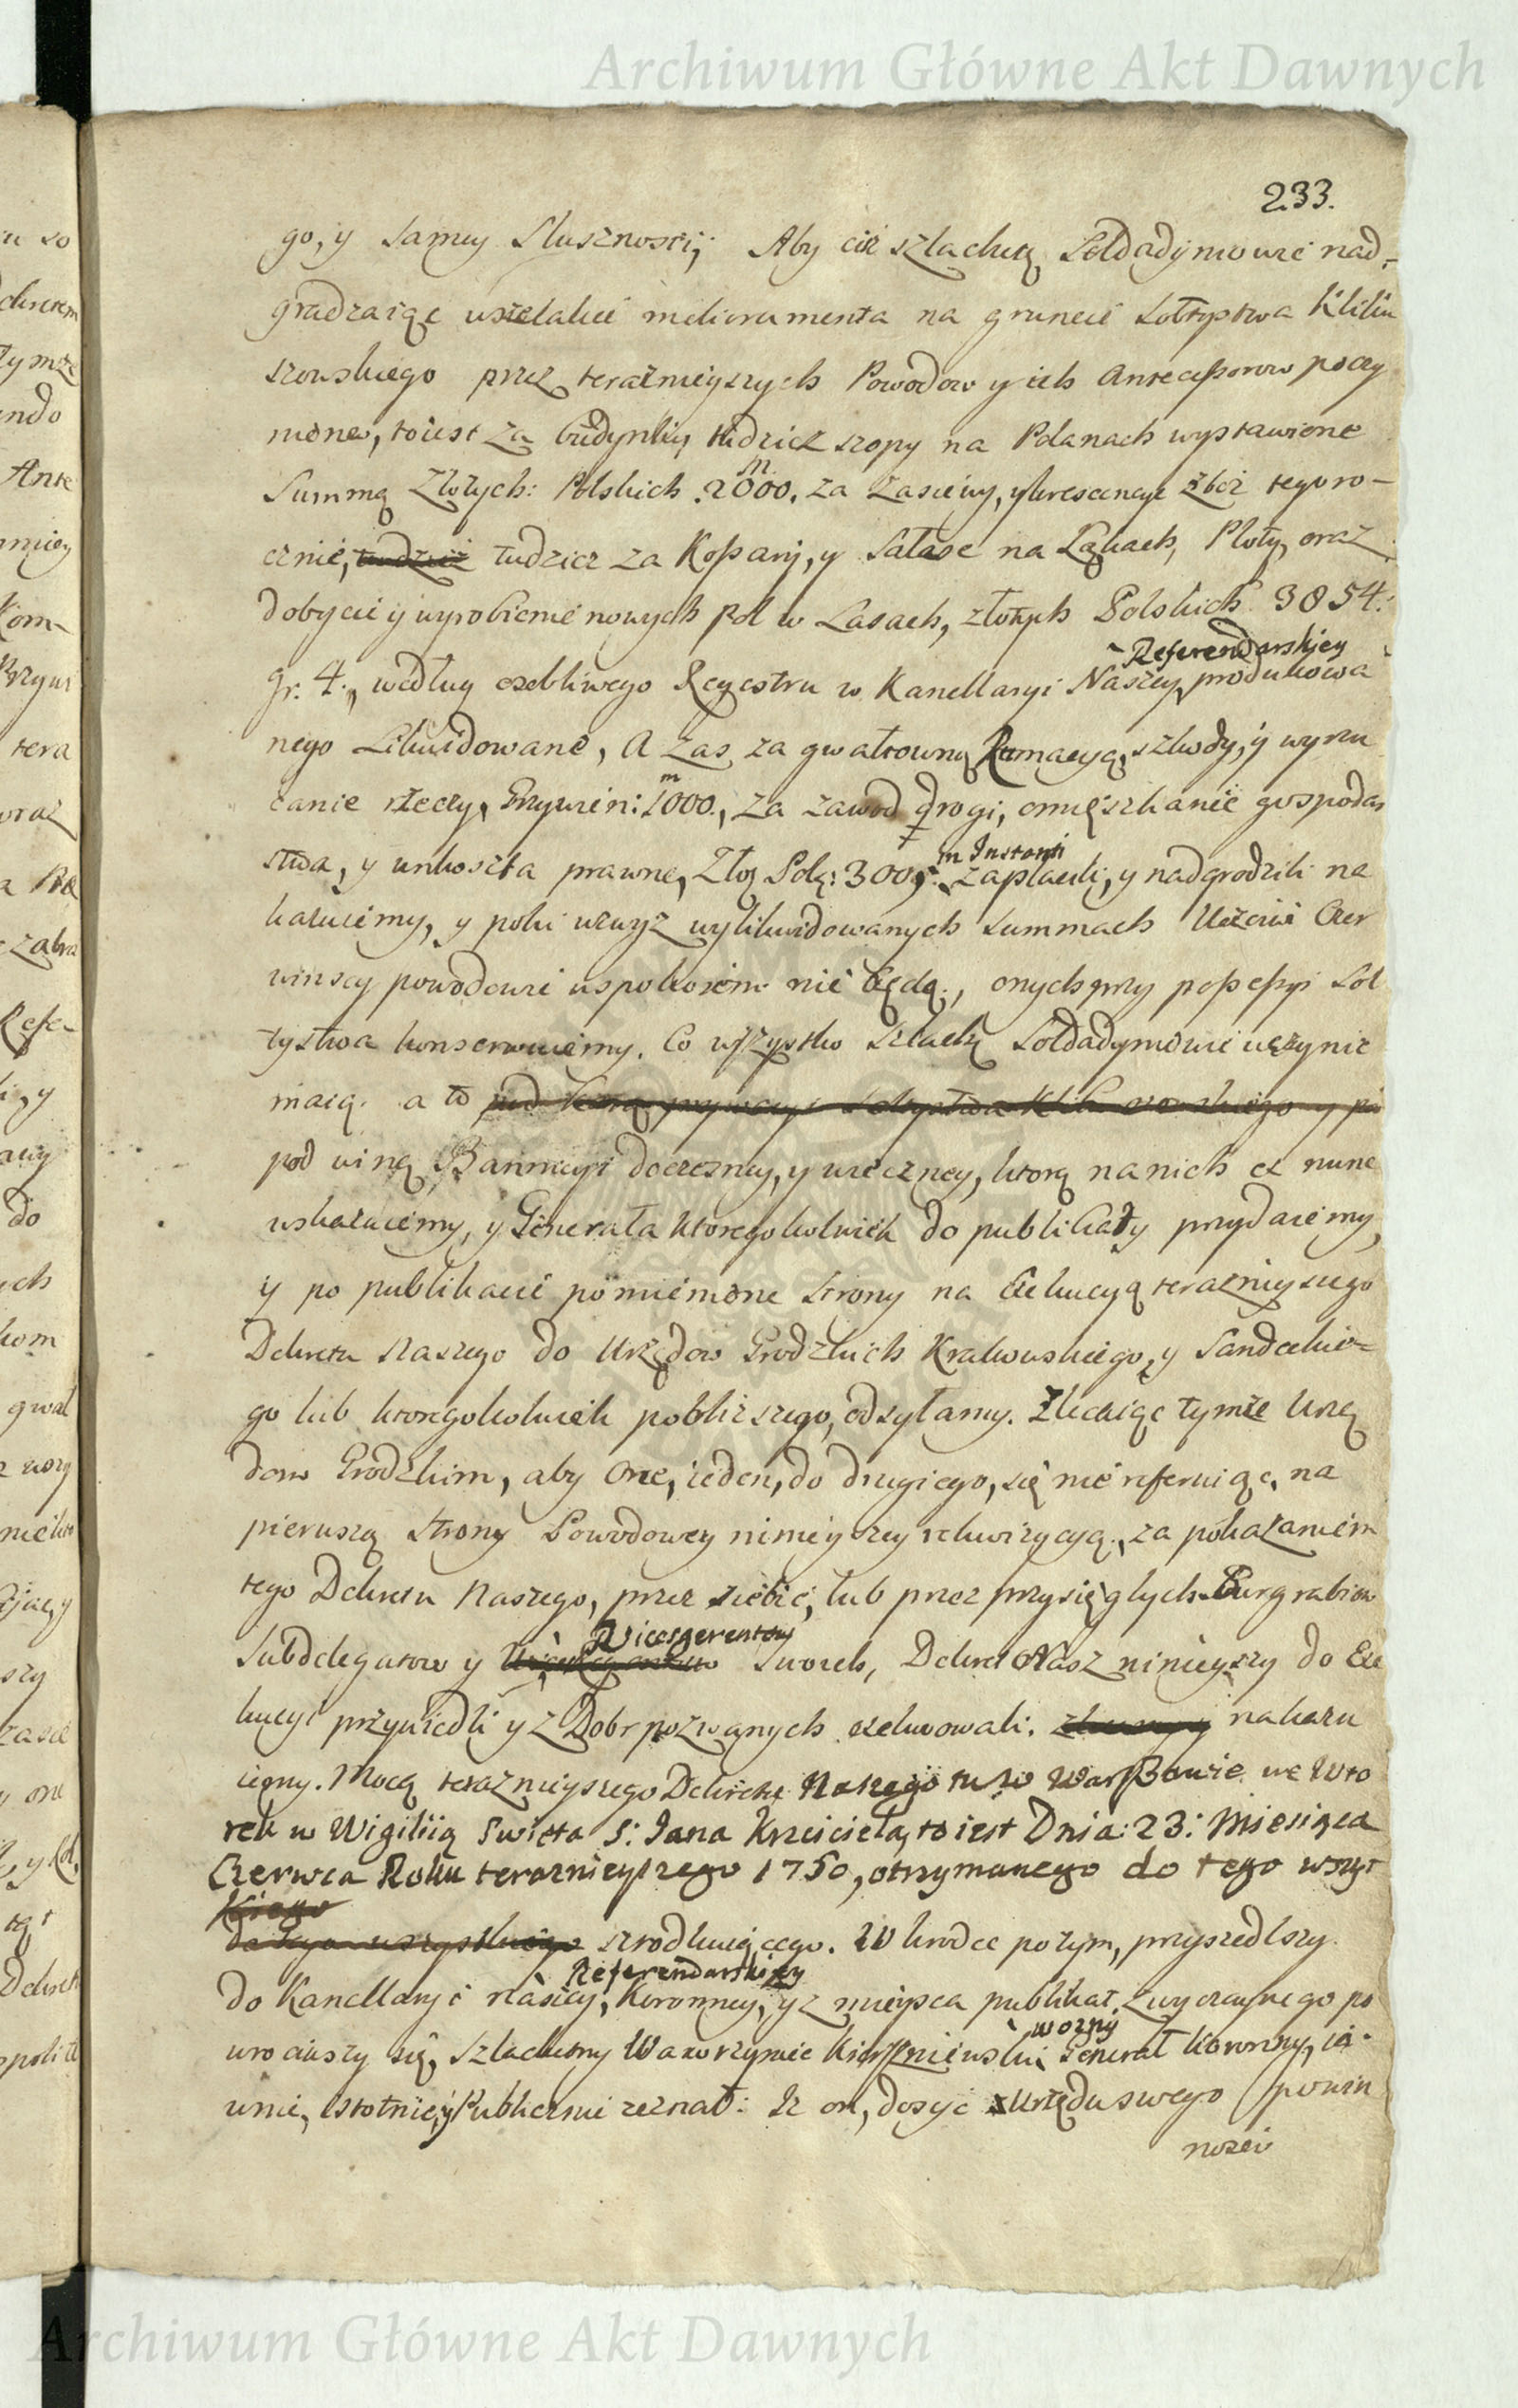 Archiwum Główne Akt Dawnych
233.
go, y samey Słusznosci; Aby ciż szlachetɀ Soldadymowie nad-
gradzaiąc wszelakie melioramenta na gruncie Sołtystwa Kliku
szowskiego przez teraznieyszych Powodow y ich Antecessorow poczy
nione, toiest za budynki, tudziez szopy na Polanach wystawione
Summą Złotych: Polskich 2000. m za Zasiewy, y krescencye zboz tegoro-
cznie, tudzież tudziez za Kopany, y Sałasze na Łąkach, Płoty, oraz
dobycie y wyrobienie nowych Pol w Lasach, złotych Polskich 3854.
gr. 4., według osobliwego Regestru w Kancellaryi Naszey Referendarskiey produkowa
nego Likwidowane, A Zas za gwałtowną Rumacyą, szkody, y wyrzu
canie rzeczy, Grzywien: 1000. m, za zawod drogi, omieszkanie gospodar
stwa, y unkoszta prawne, Złoɀ Polɀ: 300, in Instanti zapłacili, y nadgrodzili na
kazuiemy, y poki wzwyz wylikwidowanych summach Uczciwi Czer
winscy powodowie uspokoieni nie będą, onych przy possessyi Soł
tystwa konserwuiemy. Co wszystko Szlachɀ Soldadymowie uczynic
maią. a to pod winą
pod winą Bannicyi doczesney, y wieczney, ktorą nanich ex nunc
wskazuiemy, y Generała ktoregokolwiek do publikaty przydaiemy,
y po publikacie pomienione Strony na Exekucyą teraznieyszego
Dekretu Naszego do Urzędow Grodzkich Krakowskiego, y Sandeckie-
go lub ktoregokolwiek poblizszego, odsyłamy. Zlecaiąc tymże Urzę
dom Grodzkim, aby one, ieden, do drugiego, się nie referuiąc, na
pierwszą Strony Powodowey ninieyszey rekwizycyą, za pokazaniem
tego Dekretu Naszego, przez siebie, lub przez przysięgłych Burgrabiow
Subdelegatow y Vicesgerentow Swoich, Dekret Nasz ninieyszy do Exe
kucyi przywiedli y z Dobr pozwanych exekwowali. nakazu
iemy. Mocą teraznieyszego Dekretu Naszego tu w Warszawie we Wto
rek w Wigiliią Swięta S: Jana Krzciciela, to iest Dnia: 23: Miesiąca
Czerwca Roku teraznieyszego 1750, otrzymanego do tego wszyt
kiego
do tego wszystkiego srodkuiącego. Wkrodce potym, przyszedłszy
do Kancellaryi Naszey, Referendarskiey Koronney, y z mieysca publikat zwyczaynego po
wrociwszy się, Szlachetny Wawrzyniec Woźny Generał Koronny, ia-
wnie, istotnie, y Publicznie zeznał: Iz on, dosyć Urzędu swego powin
nosci
Archiwum Główne Akt Dawnych